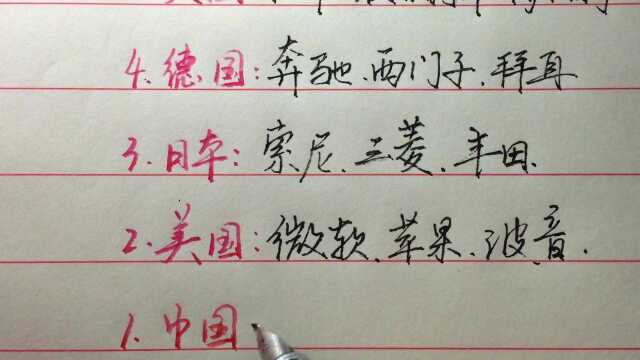 4.德国:奔驰、西门子、拜耳
3.日本:索尼、三菱、丰田.
2.美国:微软、苹果、波音.
1.中国